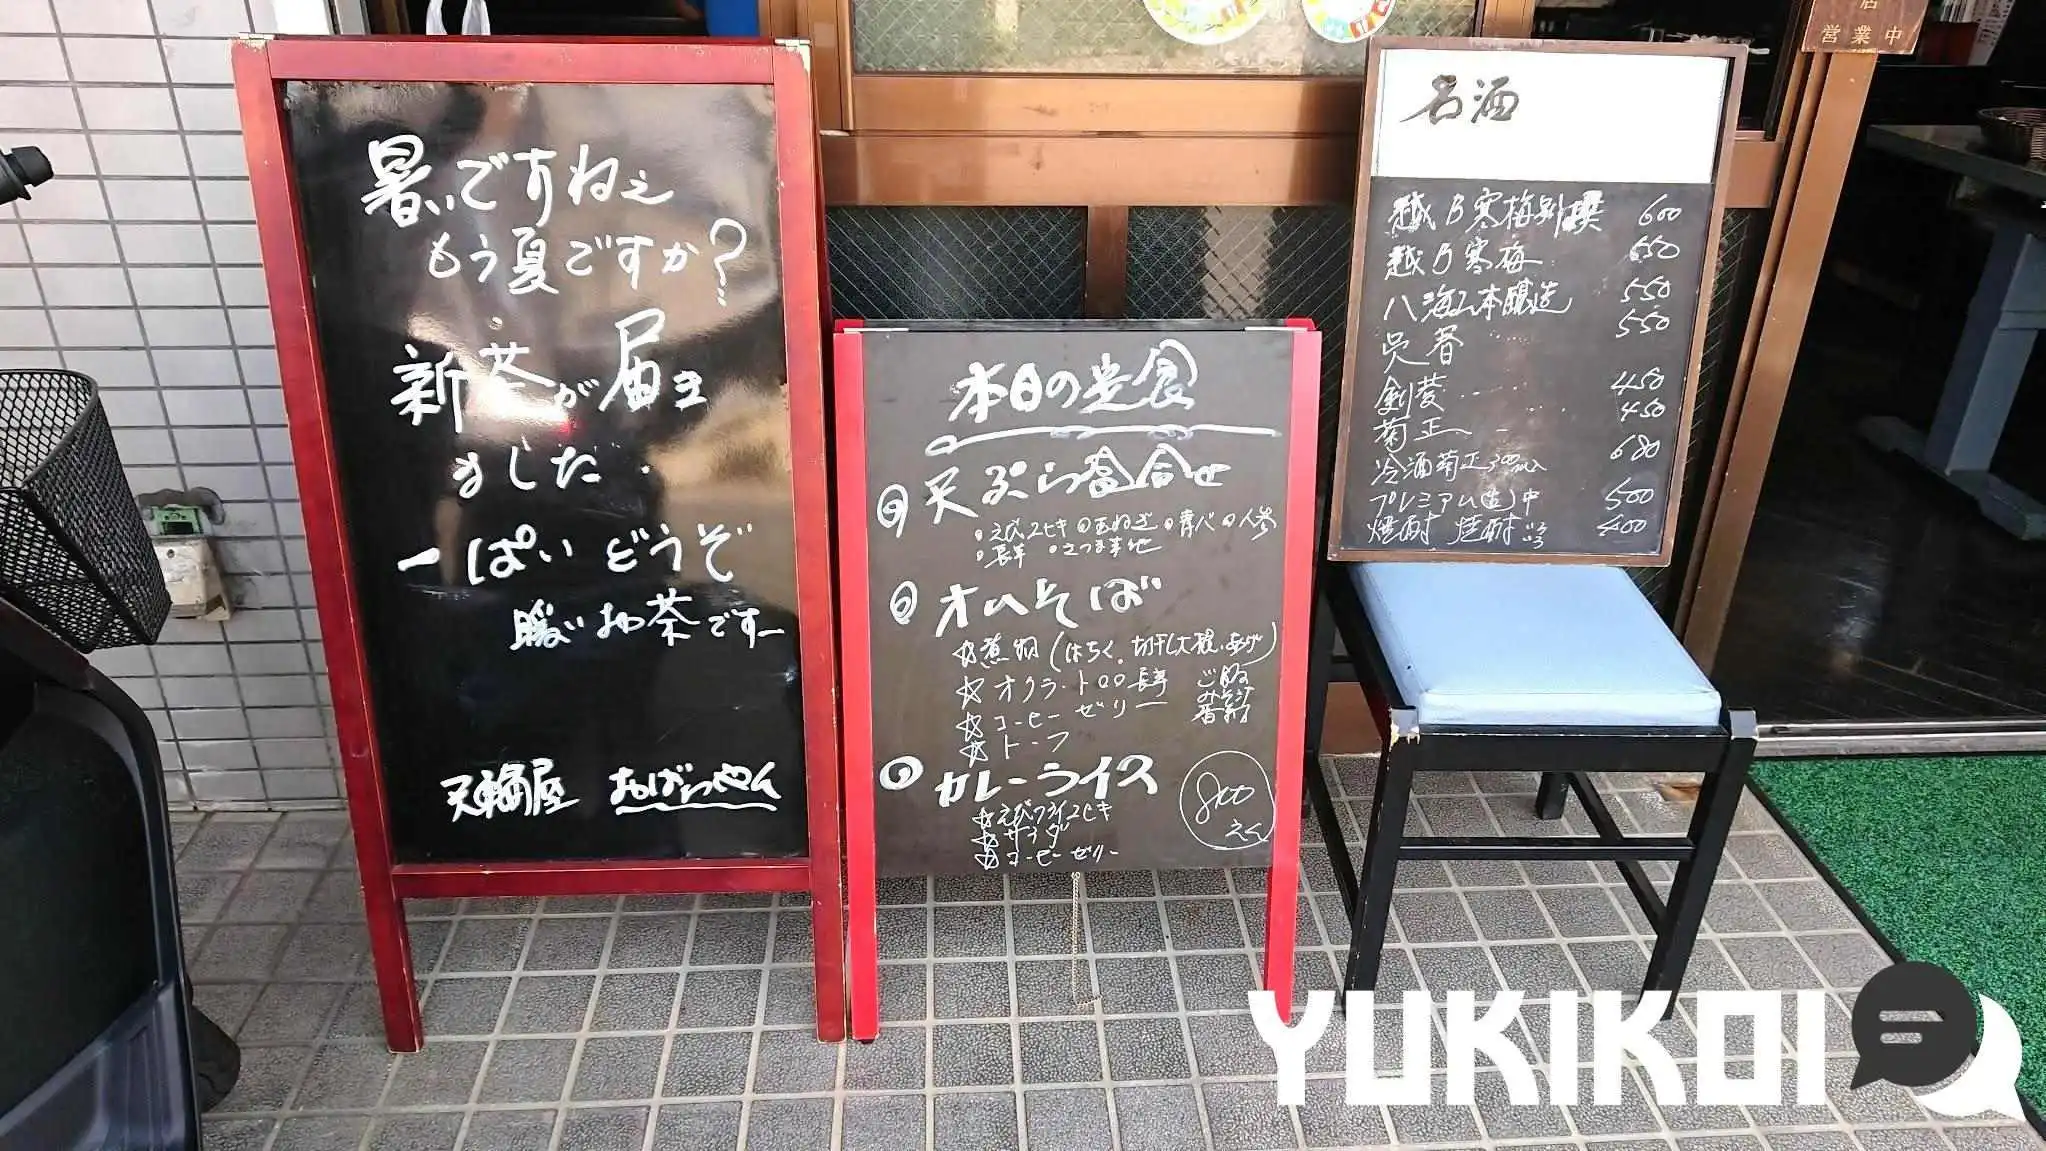 暑いですねぇ
もう夏ですか?
新茶が届き
ました
一ぱいどうぞ
暖いお茶です
天輪屋 おばちゃん
本日の定食
天ぷら盛合せ
えび2ヒキ 玉ねぎ 青べ 人参
長芋 さつま芋
オムそば
煮物(ほうれん 切干し大根 あげ)
オクラ・トロロ長芋
コーヒーゼリー
トーフ
ごはん
みそ汁
カレーライス
えびフライ2ヒキ
サラダ
コーヒーゼリー
800
えん
名酒
越乃寒梅別撰 600
越乃寒梅 550
八海山本醸造 550
呉春 550
剣菱 450
菊正 450
冷酒菊正300ml入 680
プレミアム(生)中 500
焼酎 焼酎 400
営業中
YUKIKOI